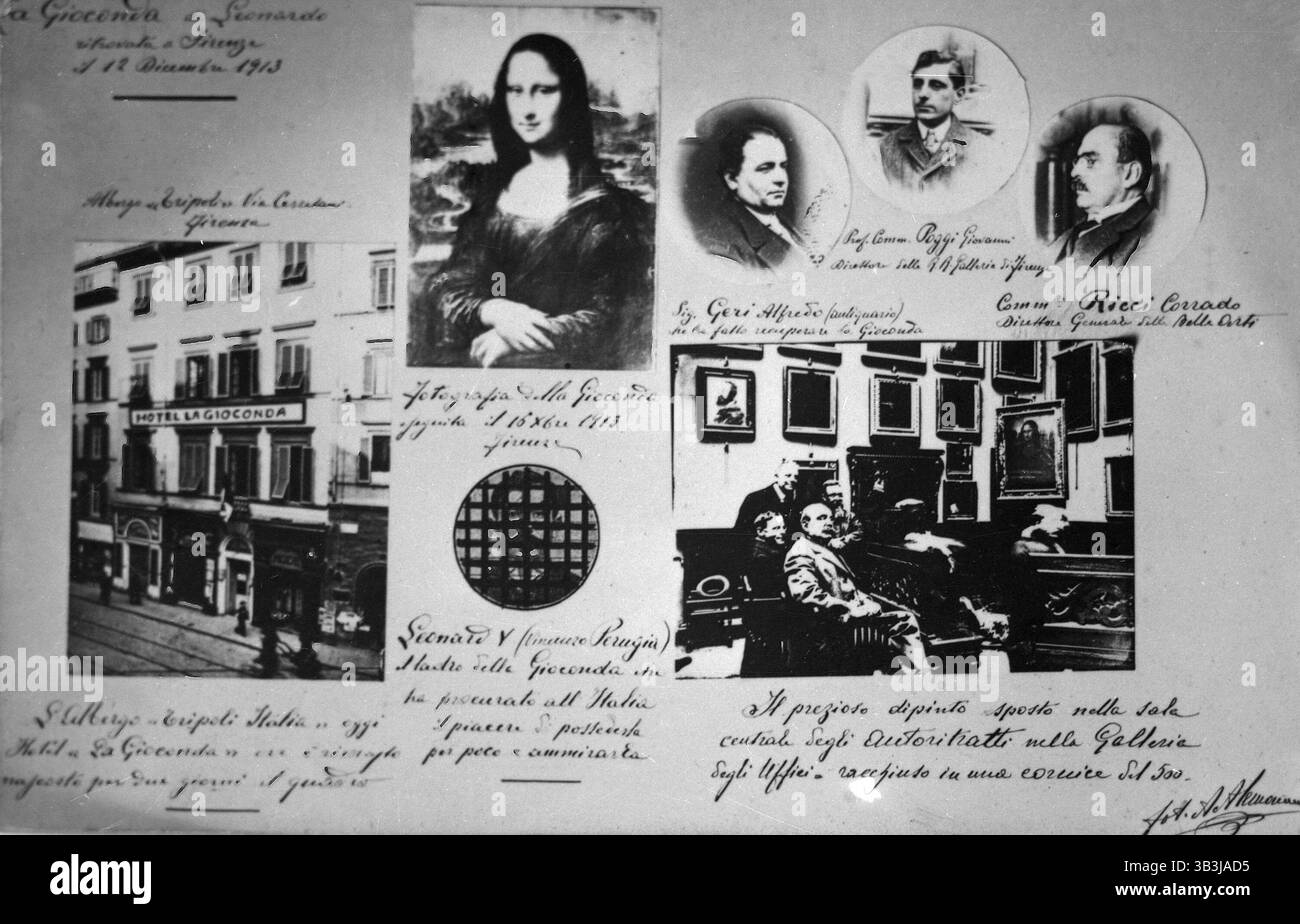 La Gioconda di Leonardo
ritrovata a Firenze
il 12 Dicembre 1913
Albergo "Tripoli" Via Cerretani
Firenze
HOTEL LA GIOCONDA
L'Albergo "Tripoli Italia" oggi
Hotel "La Gioconda" ove è rimasto
nascosto per due giorni il quadro
Fotografia della Gioconda
eseguita il 16 Xbre 1913
Firenze
Leonard V (Vincenzo Perugia)
il ladro della Gioconda che
ha procurato all'Italia
il piacere di possederla
per poco e ammirarla
Prof. Comm. Poggi Giovanni
Direttore delle R R Gallerie di Firenze
Sig. Geri Alfredo (antiquario)
che ha fatto recuperare la Gioconda
Comm. Ricci Corrado
Direttore Generale delle Belle Arti
Il prezioso dipinto esposto nella sala
centrale degli Autoritratti nella Galleria
degli Uffici - racchiuso in una cornice del 500.
fot. A.
alamy
Image ID: 3B3JAD5
www.alamy.com